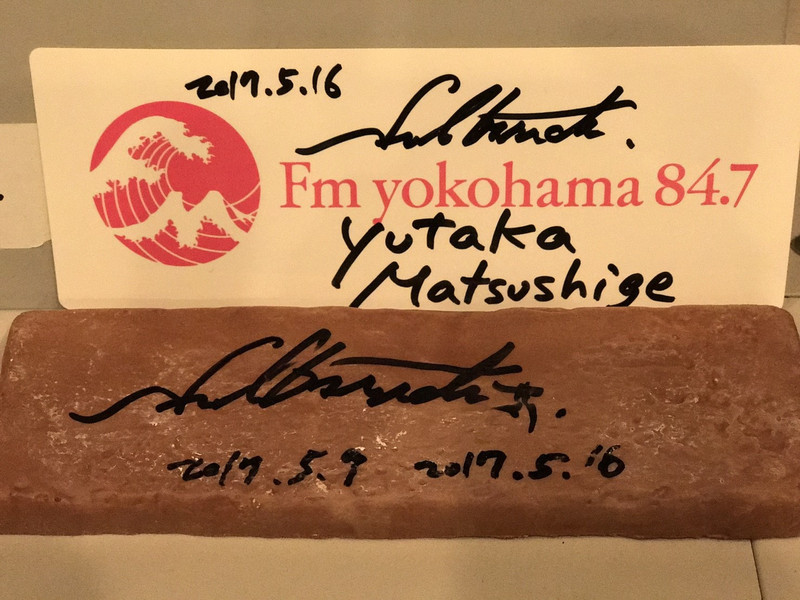 2017.5.16
Fm yokohama 84.7
Yutaka
Matsushige
2017.5.9 2017.5.16